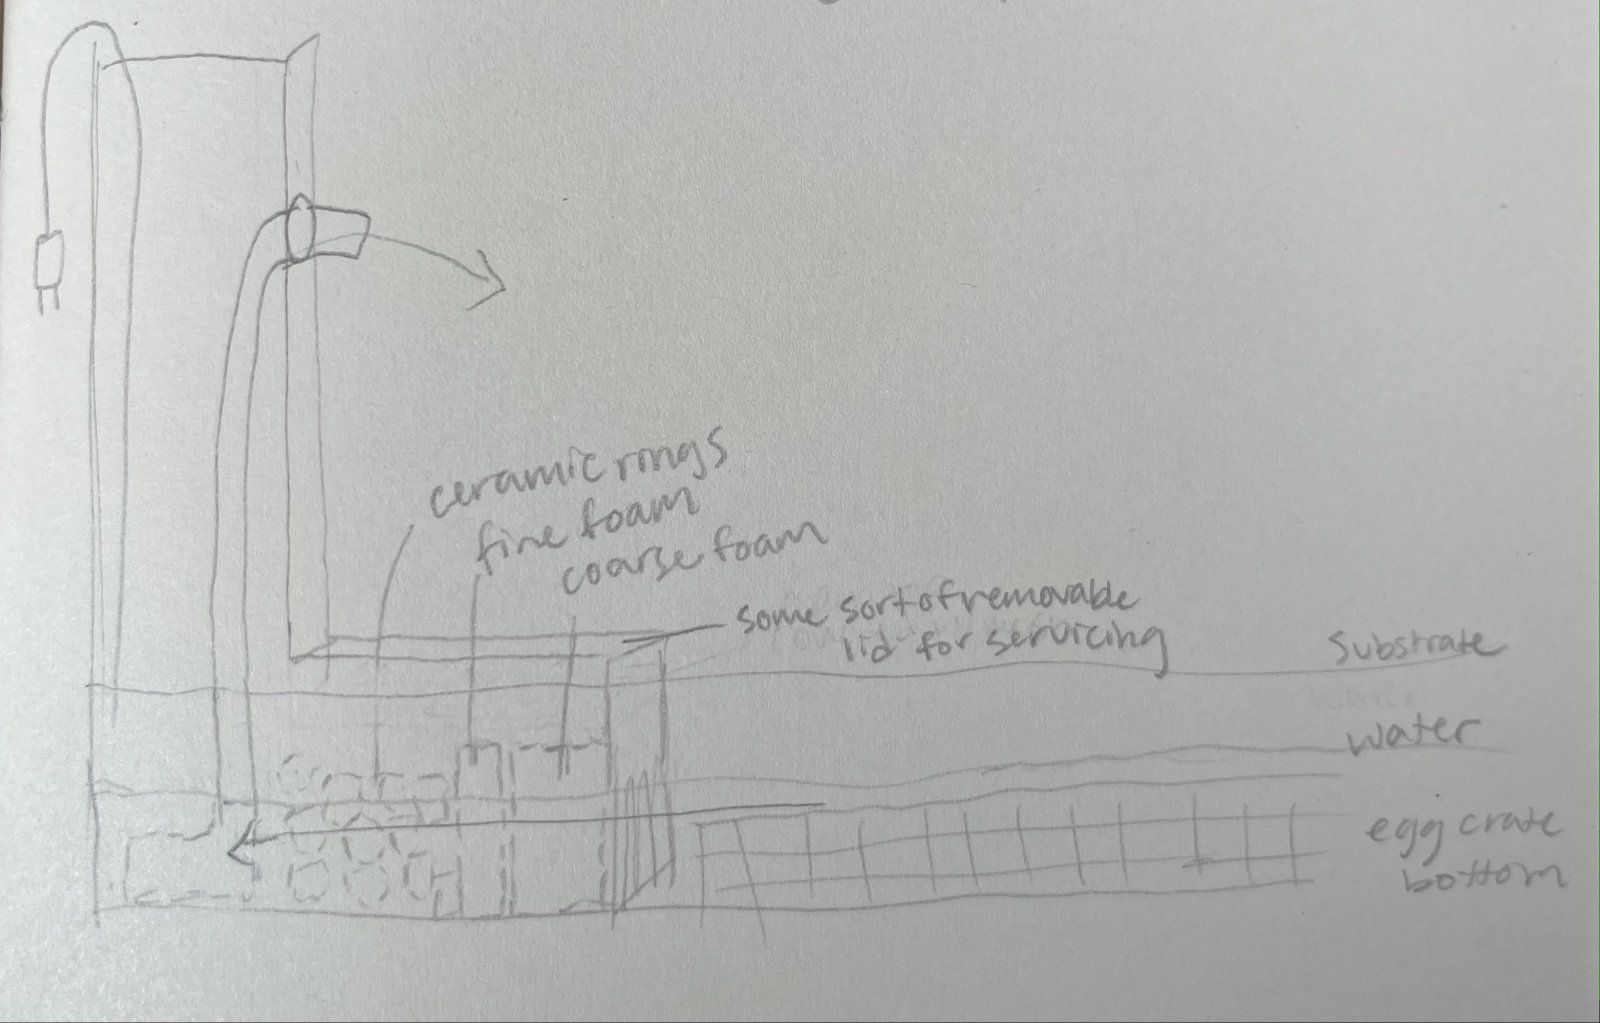 ceramic rings
fine foam
coarse foam
some sort of removable
lid for servicing
substrate
water
egg crate
bottom